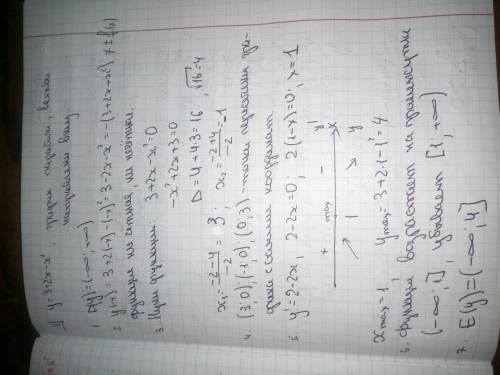 1) y=3+2x-x², график парабола, ветви
направлены вниз.
1. D(y)=(-∞; +∞)
2. y(-x)=3+2(-x)-(-x)²=3-2x-x²=-(3+2x+x²)≠±f(x)
функция ни четная, ни нечётная.
3. Нули функции 3+2x-x²=0
-x²+2x+3=0
D=4+4·3=16, √16=4
x₁=(-2-4)/-2=3; x₂=(-2+4)/-2=-1
4. (3;0); (-1;0); (0;3) - точки пересечения гра-
фика с осями координат
5. y'=2-2x, 2-2x=0; 2(1-x)=0; x=1
+ max - y'
x
↗ 1 ↘ y
x max=1, y max=3+2·1-1²=4.
6. функция возрастает на промежутке
(-∞; 1], убывает [1; +∞)
7. E(y)=(-∞; 4]